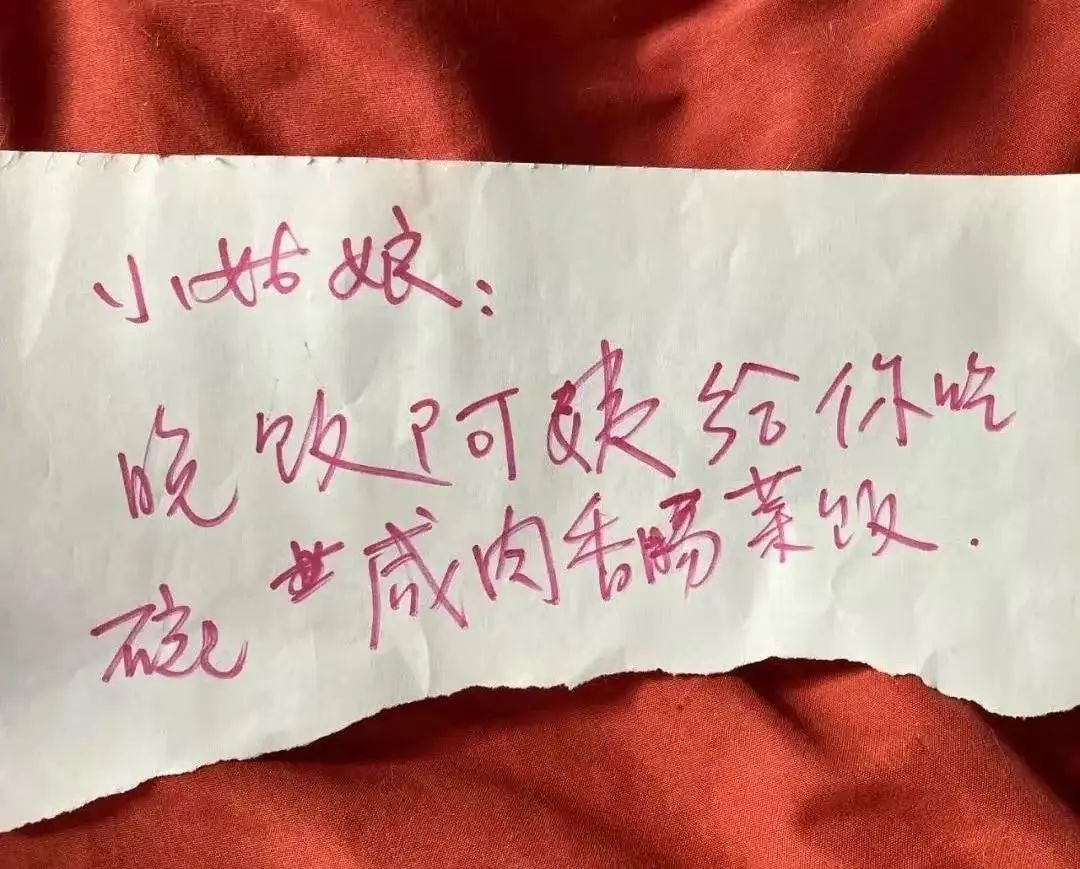 小姑娘：
晚饭阿姨给你吃
碗咸肉香肠菜饭.